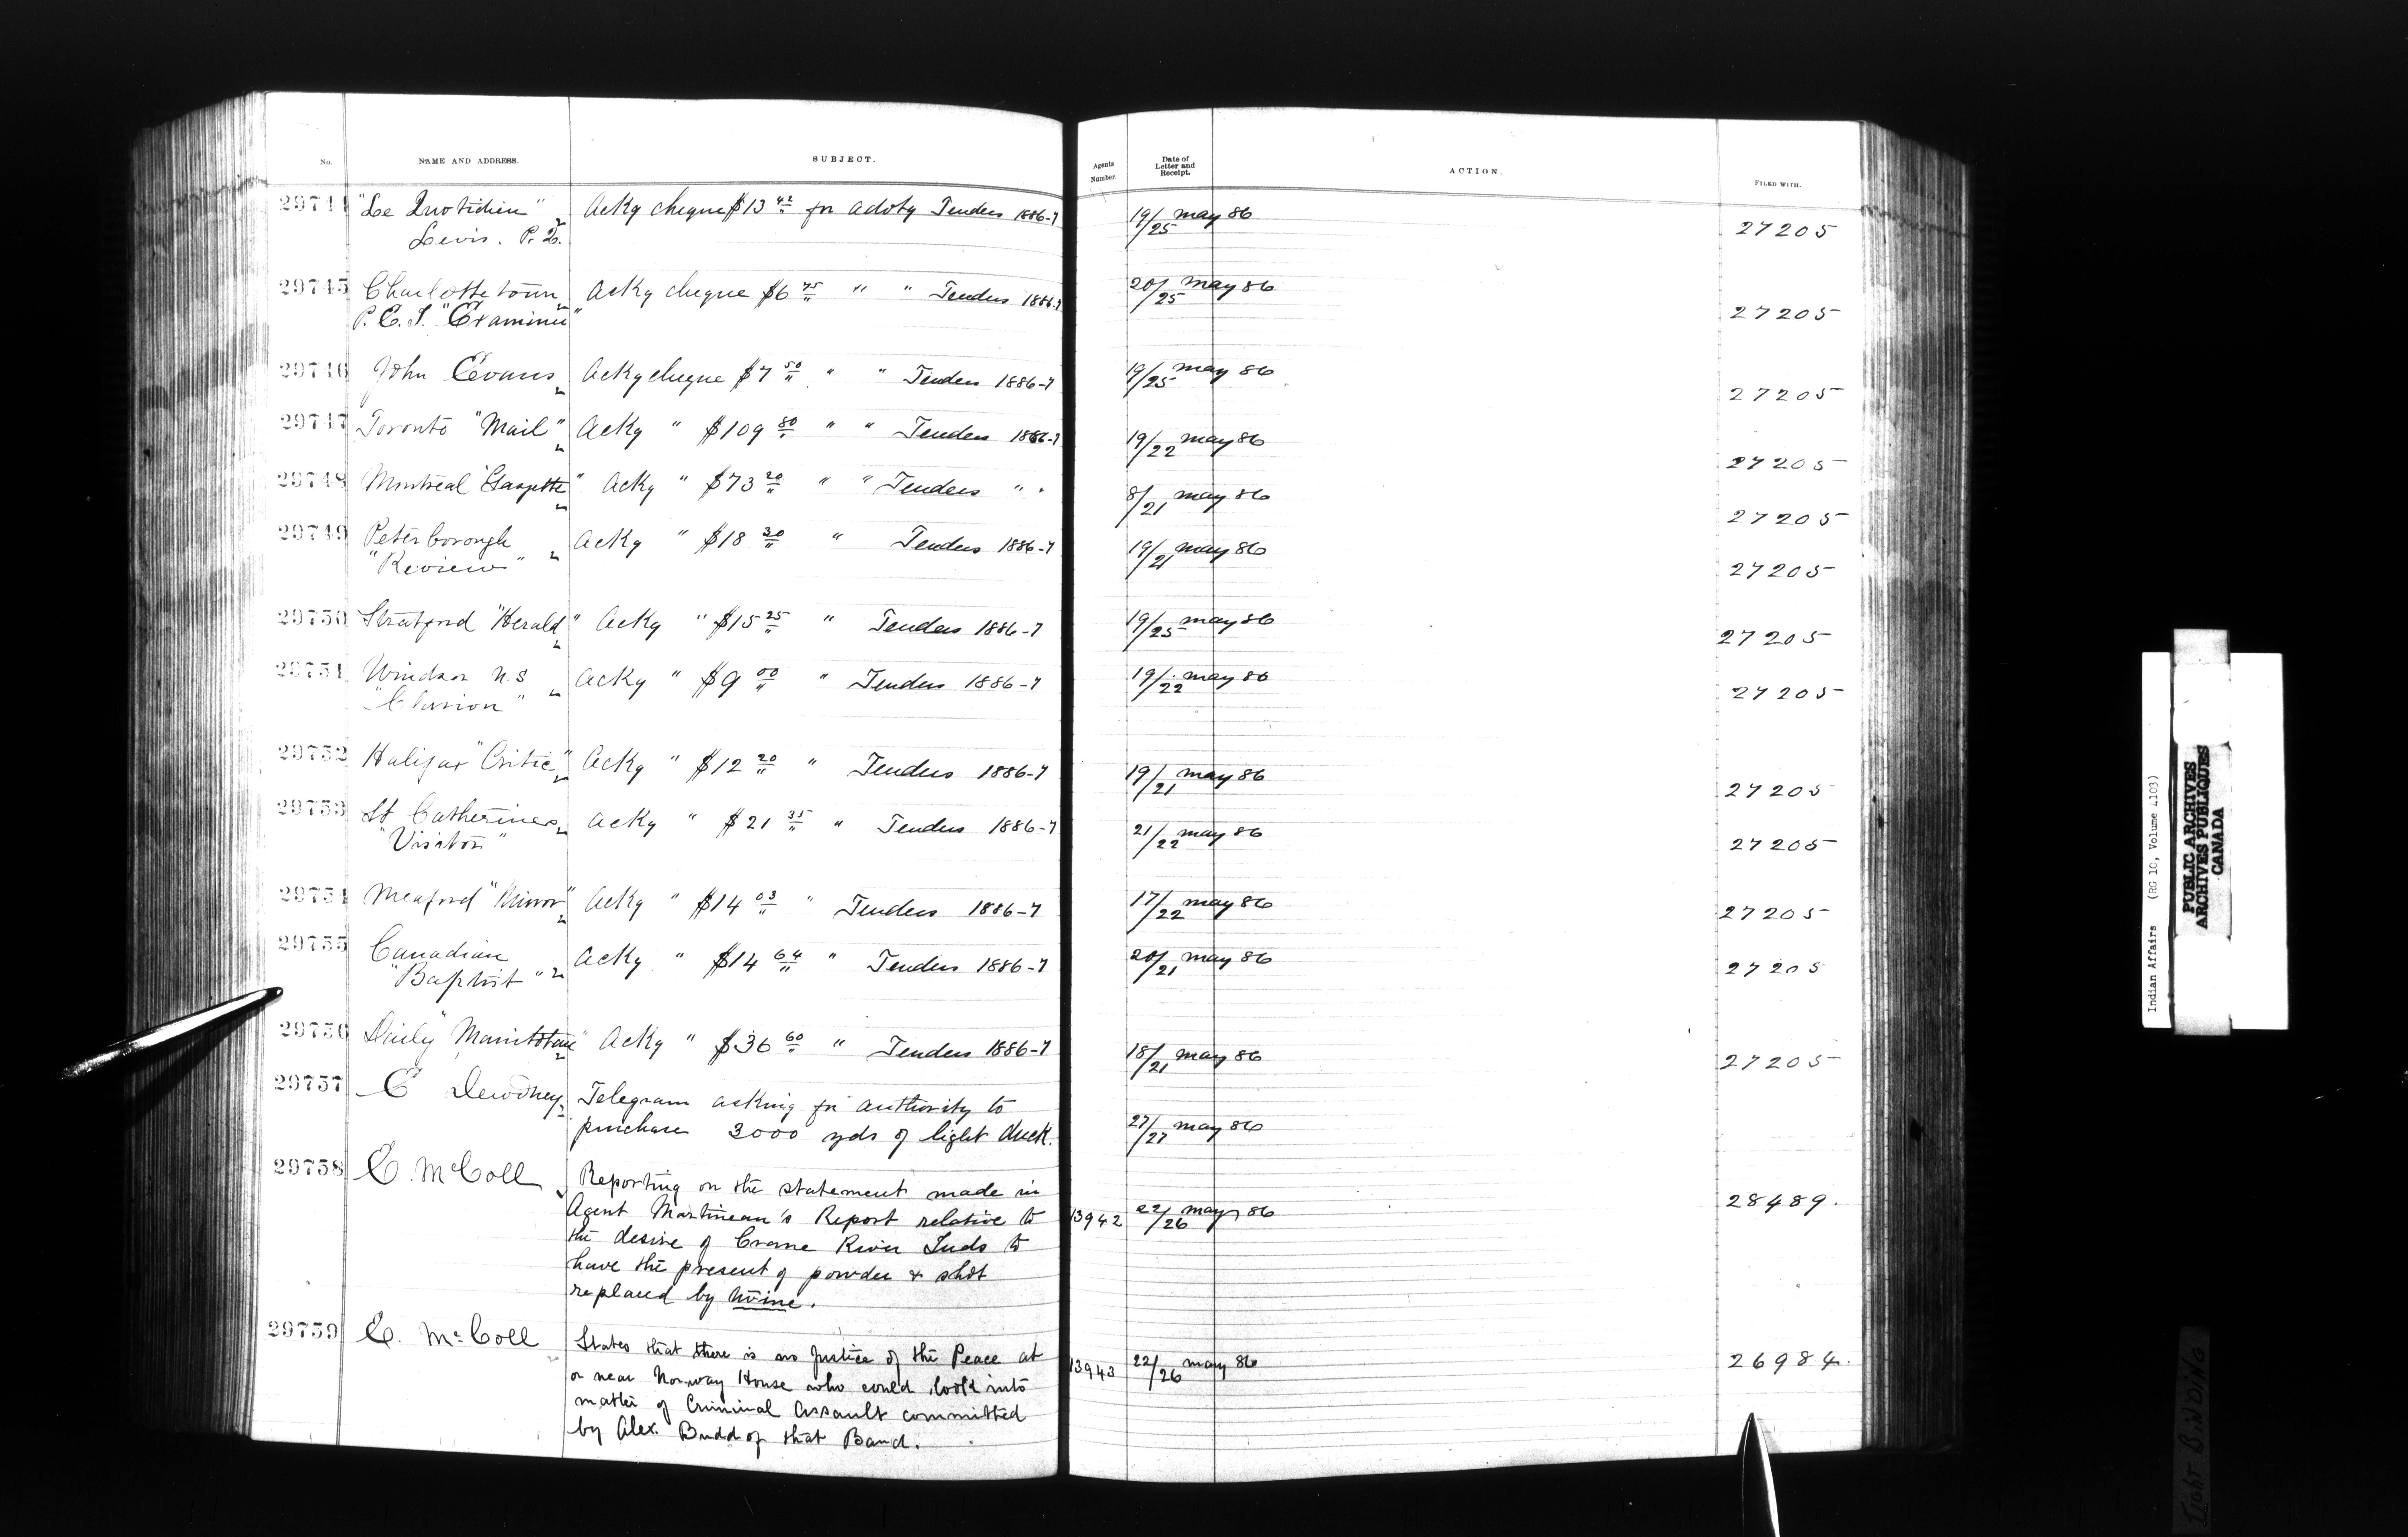 No. NAME AND ADDRESS. SUBJECT. Agents Number. Date of Letter and Receipt. ACTION. FILED WITH.
29744 "Le Quotidien" Acky cheque $13 42 for advtg Tenders 1886-7 19/25 May 86 27205
Levis. P. Q.
29745 Charlottetown Acky cheque $6 75 " " Tenders 1886-7 20/25 May 86 27205
P. E. I. "Examiner"
29746 John Evans Acky cheque $7 50 " " Tenders 1886-7 19/25 May 86 27205
29747 Toronto "Mail" Acky " $109 80 " " Tenders 1886-7 19/22 May 86 27205
29748 Montreal "Gazette" Acky " $73 20 " " Tenders " " 8/21 May 86 27205
29749 Peterborough Acky " $18 30 " Tenders 1886-7 19/21 May 86 27205
"Review"
29750 Stratford "Herald" Acky " $15 25 " Tenders 1886-7 19/25 May 86 27205
29751 Windsor N.S Acky " $9 00 " Tenders 1886-7 19/22 May 86 27205
29752 Halifax "Critic" Acky " $12 20 " Tenders 1886-7 19/21 May 86 27205
29753 St Catherines Acky " $21 35 " Tenders 1886-7 21/22 May 86 27205
"Visitor"
29754 Meaford "Mirror" Acky " $14 03 " Tenders 1886-7 17/22 May 86 27205
29755 Canadian Acky " $14 64 " Tenders 1886-7 20/21 May 86 27205
"Baptist"
29756 Daily "Manitoban" Acky " $36 60 " Tenders 1886-7 18/21 May 86 27205
29757 E Dewdney Telegram asking for authority to
purchase 3000 yds of light duck. 27/27 May 86
29758 E. McColl Reporting on the statement made in 28489.
Agent Martineau's Report relative to 13942 22/26 May 86
the desire of Crane River Inds to
have the present of powder & shot
replaced by twine.
29759 E. McColl States that there is no Justice of the Peace at 13943 22/26 May 86 26984.
or near Norway House who could look into
matter of Criminal Assault committed
by Alex. Budd of that Band.
Indian Affairs (RG 10, Volume 4103)
PUBLIC ARCHIVES
ARCHIVES PUBLIQUES
CANADA
Tight BINDING